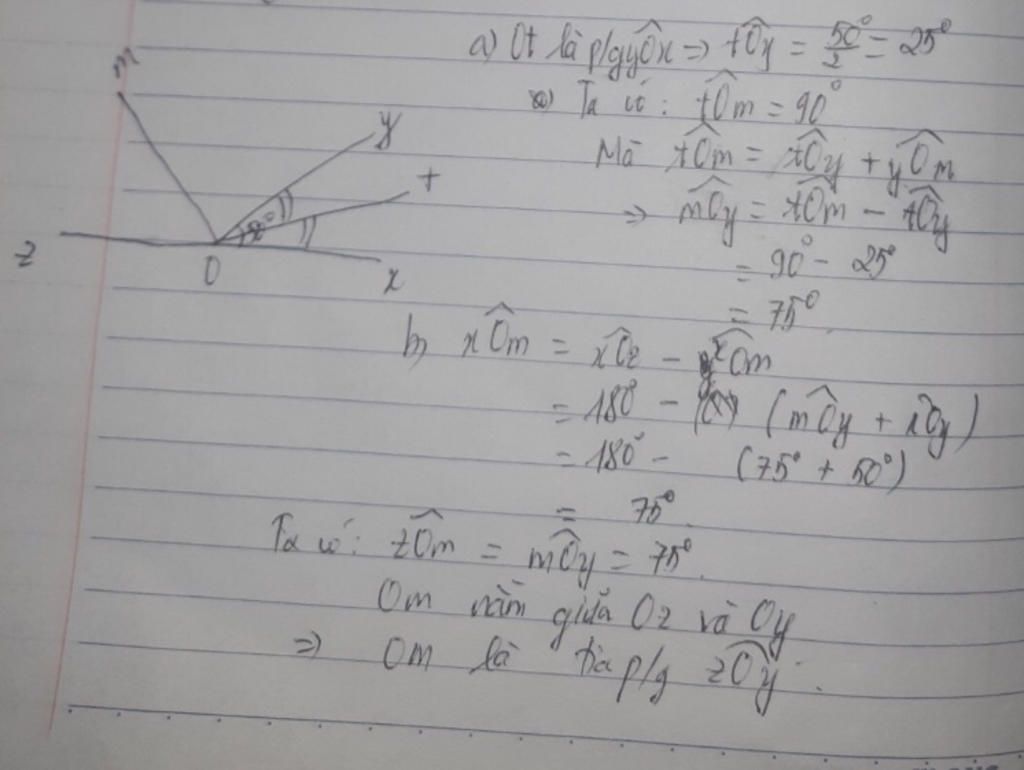 m
y
t
z
O
x
a) Ot là p/g yÔx => tÔy = 50°/2 = 25°
Ta có: tÔm = 90°
Mà tÔm = tÔy + yÔm
=> mÔy = tÔm - tÔy
= 90° - 25°
= 75°
b, xÔm = xÔz - xÔm
= 180° - (mÔy + xÔy)
= 180° - (75° + 50°)
= 75°
Ta có: zÔm = mÔy = 75°.
Om nằm giữa Oz và Oy
=> Om là tia p/g zÔy.